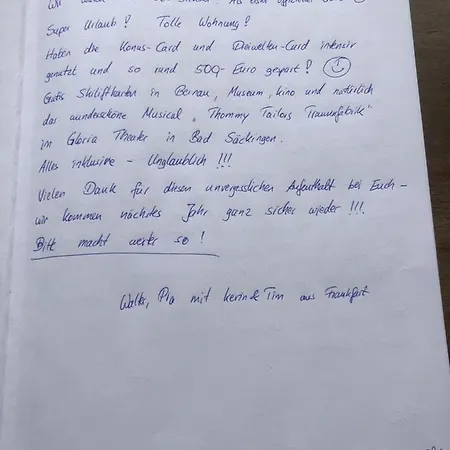 Super Urlaub! Tolle Wohnung!
Haben die Konus-Card und Dreiwelten-Card intensiv
genutzt und so rund 500,- Euro gespart!
Gratis Skiliftkarten in Bernau, Museum, Kino und natürlich
das wunderschöne Musical „Thommy Tailors Traumfabrik"
im Gloria Theater in Bad Säckingen.
Alles inklusive - Unglaublich !!!
Vielen Dank für diesen unvergesslichen Aufenthalt bei Euch -
wir kommen nächstes Jahr ganz sicher wieder !!!
Bitte macht weiter so !
Walter, Pia mit Tim aus Frankfurt